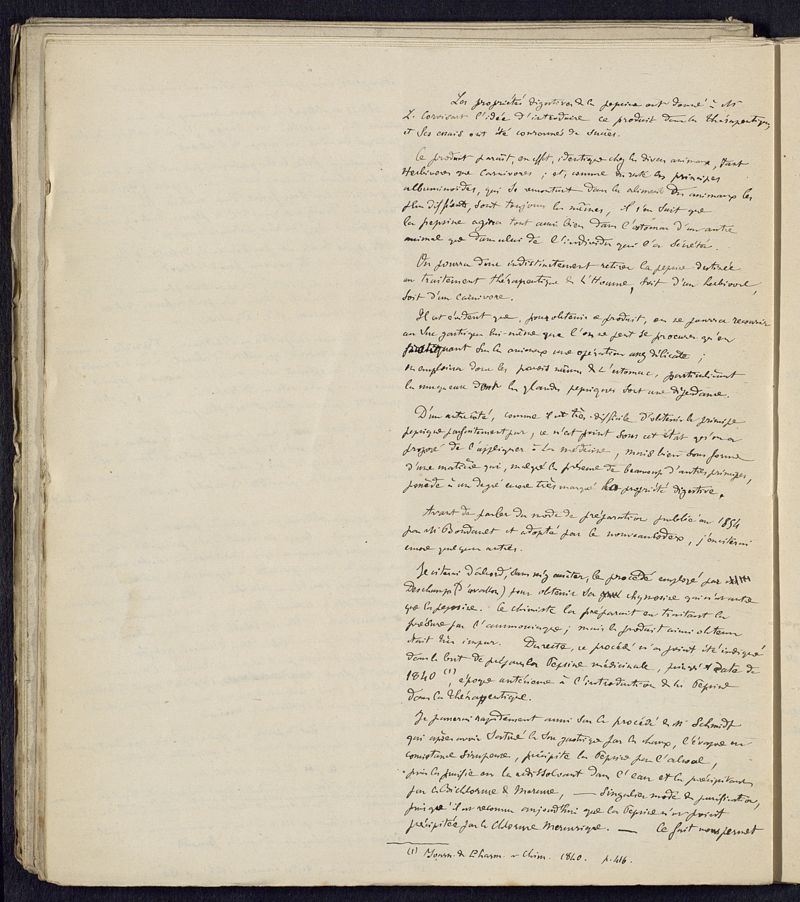 Les propriétés digestives de la pepsine ont donné à Mr
L. Corvisart l'idée d'introduire ce produit dans la thérapeutique,
et ses essais ont été couronnés de succès.
Ce produit paraît, en effet, identique chez les divers animaux, tant
herbivores que carnivores ; et, comme les principes
albuminoïdes, qui se rencontrent dans les aliments des animaux les
plus différents, sont toujours les mêmes, il s'en suit que
la pepsine agira tout aussi bien dans l'estomac d'un autre
animal que dans celui de l'individu qui l'a sécrétée.
On pourra donc indistinctement retirer la pepsine destinée
au traitement thérapeutique de l'Homme, soit d'un herbivore,
soit d'un carnivore.
Il est évident que, pour obtenir ce produit, on ne pourra recourir
au suc gastrique lui-même que l'on ne peut se procurer qu'en
pratiquant sur les animaux une opération assez délicate ;
on emploiera donc les parois mêmes de l'estomac, particulièrement
la muqueuse dont les glandes pepsiques sont une dépendance.
D'un autre côté, comme il est très-difficile d'obtenir le principe
pepsique parfaitement pur, ce n'est point sous cet état qu'on a
proposé de l'appliquer à la médecine, mais bien sous forme
d'une matière qui, malgré la présence de beaucoup d'autres principes,
possède à un degré encore très marqué la propriété digestive.
Avant de parler du mode de préparation publié en 1854
par Mr Boudault et adopté par le nouveau Codex, j'en citerai
encore quelques autres.
Je citerai d'abord, sans m'y arrêter, le procédé employé par
Deschamps (d'Avallon) pour obtenir sa chymosine qui n'est autre
que la pepsine. Ce chimiste la préparait en traitant la
présure par l'ammoniaque ; mais le produit ainsi obtenu
était très impur. Du reste, ce procédé n'a point été indiqué
dans le but de préparer la Pepsine médicinale, puisqu'il date de
1840 (1), époque antérieure à l'introduction de la Pepsine
dans la thérapeutique.
Je passerai rapidement aussi sur le procédé de Mr Schmidt
qui après avoir saturé le suc gastrique par la chaux, l'évapore en
consistance sirupeuse, précipite la Pepsine par l'alcool,
puis la purifie en la redissolvant dans l'eau et la précipitant
par le Bichlorure de Mercure, — singulier mode de purification,
puisqu'il est reconnu aujourd'hui que la Pepsine n'est point
précipitée par le Chlorure Mercurique. — Ce fait nous permet
(1) Journ. de Pharm. et Chim. 1840. p. 416.